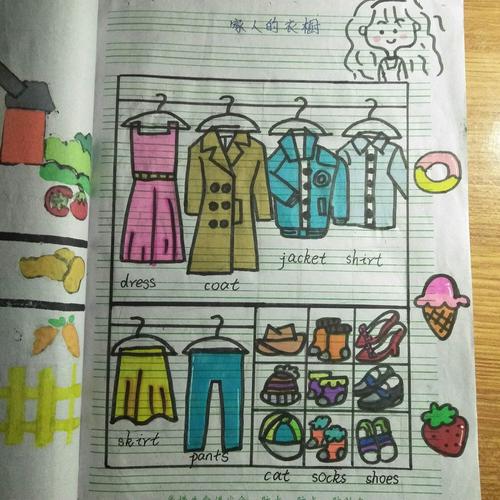 家人的衣橱
jacket shirt
dress coat
skirt
pants
cat socks shoes